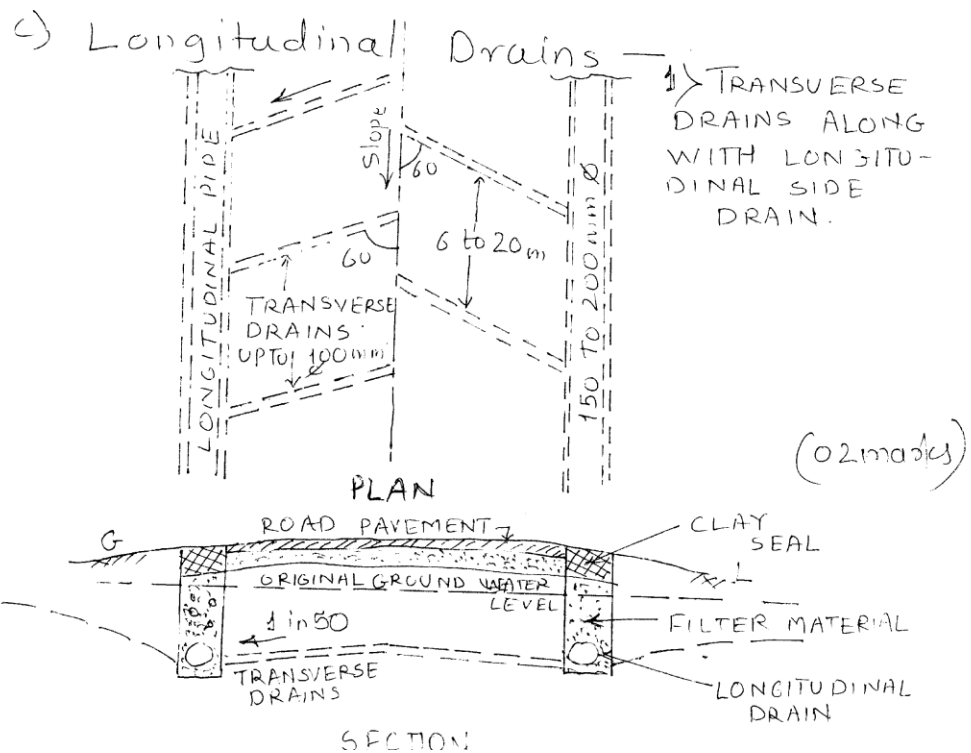 c) Longitudinal Drains —
1) TRANSVERSE
DRAINS ALONG
WITH LONGITU-
DINAL SIDE
DRAIN.
LONGITUDINAL PIPE
Slope
60
60
6 to 20 m
TRANSVERSE
DRAINS
UPTO 100 mm
150 TO 200 mm Ø
(02 marks)
PLAN
ROAD PAVEMENT
G
CLAY
SEAL
L
ORIGINAL GROUND WATER
LEVEL
1 in 50
FILTER MATERIAL
TRANSVERSE
DRAINS
LONGITUDINAL
DRAIN
SECTION